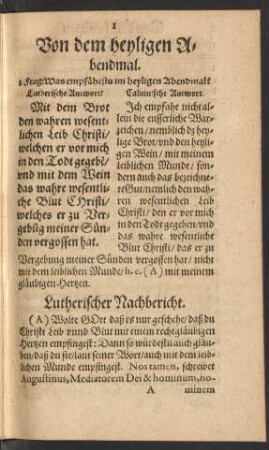 1
Von dem heyligen A-
bendmal.
1 Frag: Was empfähestu im heyligen Abendmal?
Lutherische Antwort
Mit dem Brot
den wahren wesent-
lichen Leib Christi/
welchen er vor mich
in den Todt gegebē/
vnd mit dem Wein
das wahre wesentli-
che Blut CHristi/
welches er zu Ver-
gebūg meiner Sün-
den vergossen hat.
Calvinische Antwort.
Ich empfahe nicht al-
lein die eusserliche War-
zeichen/nemblich dz hey-
lige Brot/vnd den heyli-
gen Wein/ mit meinem
leiblichen Munde/ son-
dern auch das bezeichne-
te Gut/nemlich den wah-
ren wesentlichen Leib
Christi/ den er vor mich
in den Todt gegeben/vnd
das wahre wesentliche
Blut Christi/ das er zu
Vergebung meiner Sünden vergossen hat/ nicht
mit dem leiblichen Munde/ ꝛc. (A) mit meinem
gläubigen Hertzen.
Lutherischer Nachbericht.
(A) Wolte GOtt daß es nur geschehe/ daß du
Christi Leib vnnd Blut mit einem rechtgläubigen
Hertzen empfingest: Dann so würdestu auch gläu-
ben/ daß du sie/laut seiner Wort/auch mit dem leib-
lichen Munde empfingest. Nos tamen, schreibet
Augustinus, Mediatorem Dei & hominum, ho-
A minem